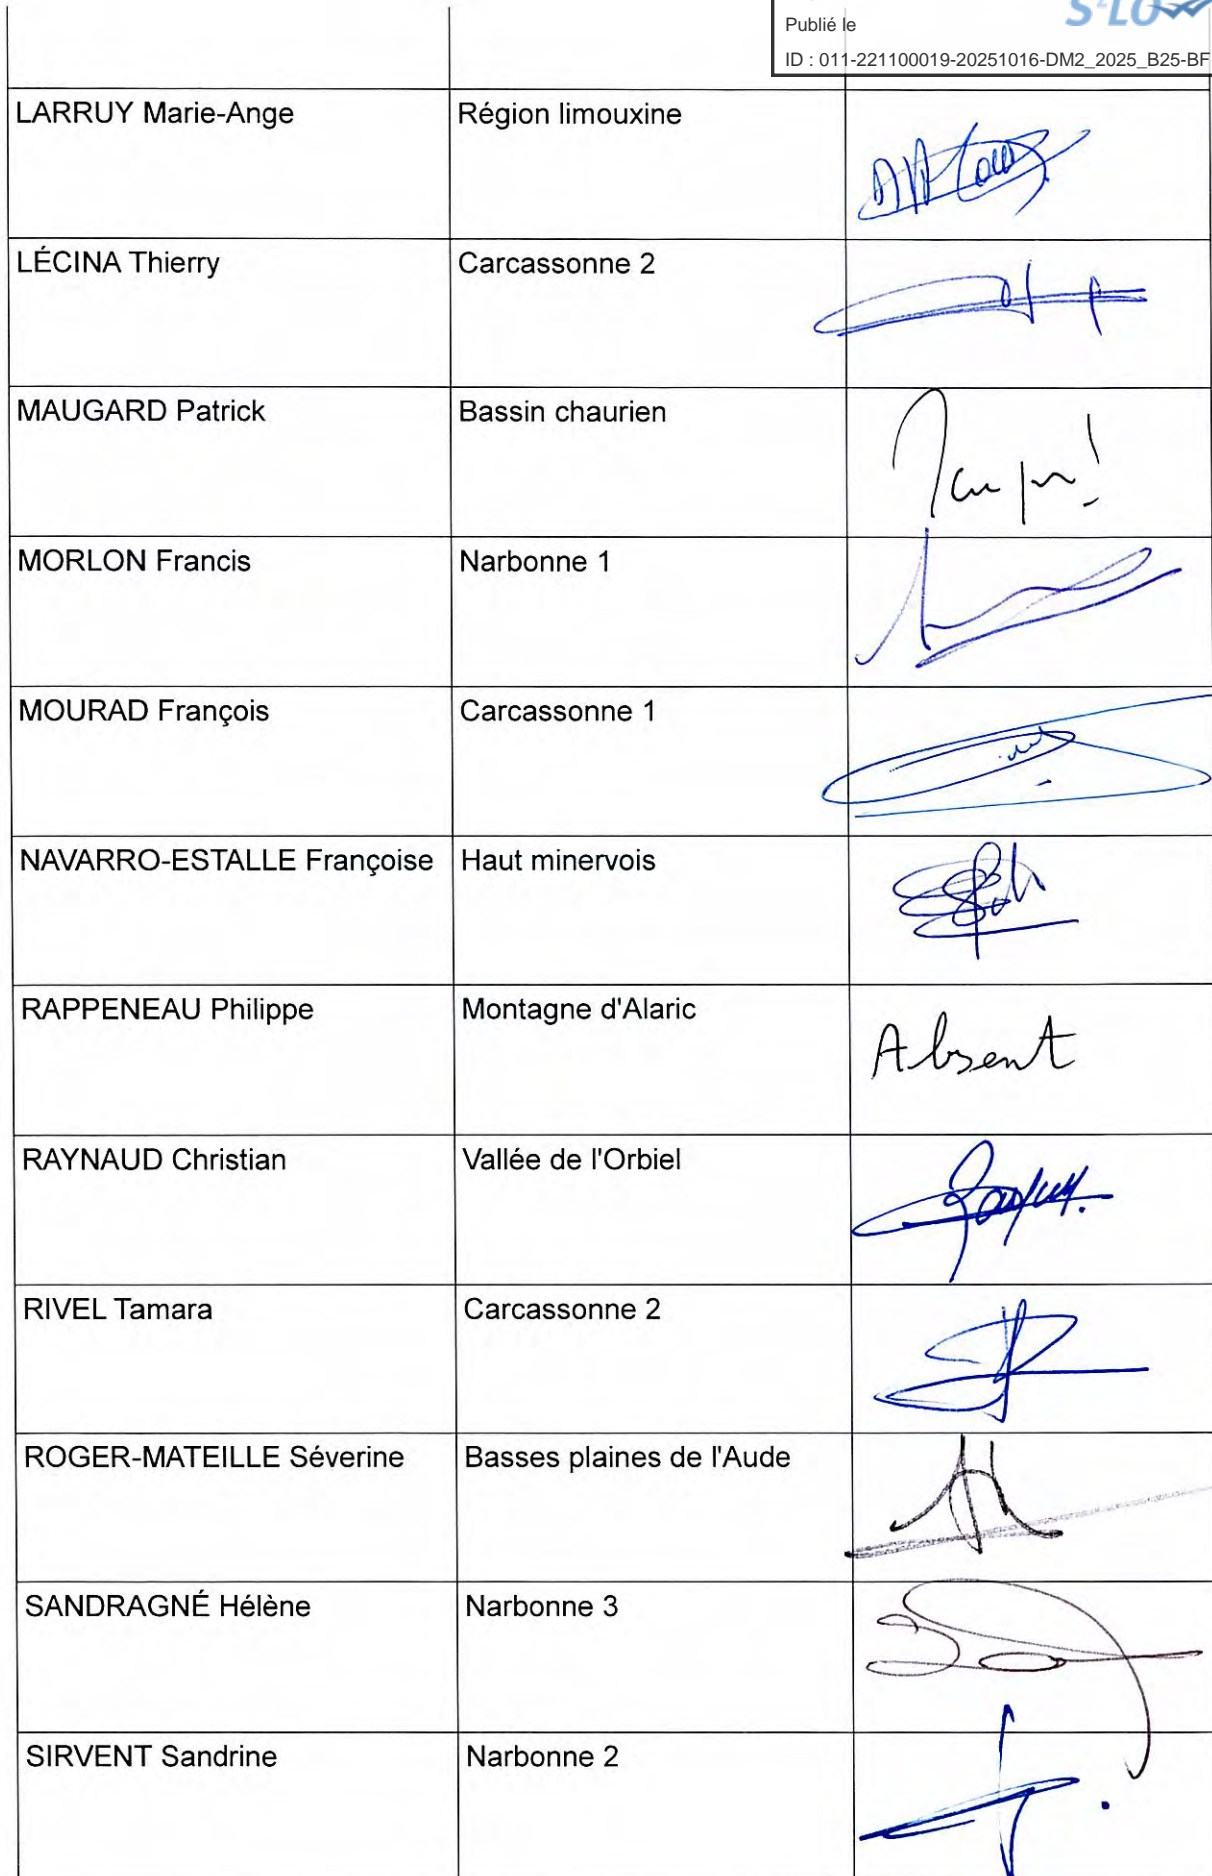 Publié le
S²LO
ID : 011-221100019-20251016-DM2_2025_B25-BF
LARRUY Marie-Ange Région limouxine
LÉCINA Thierry Carcassonne 2
MAUGARD Patrick Bassin chaurien
MORLON Francis Narbonne 1
MOURAD François Carcassonne 1
NAVARRO-ESTALLE Françoise Haut minervois
RAPPENEAU Philippe Montagne d'Alaric Absent
RAYNAUD Christian Vallée de l'Orbiel
RIVEL Tamara Carcassonne 2
ROGER-MATEILLE Séverine Basses plaines de l'Aude
SANDRAGNÉ Hélène Narbonne 3
SIRVENT Sandrine Narbonne 2